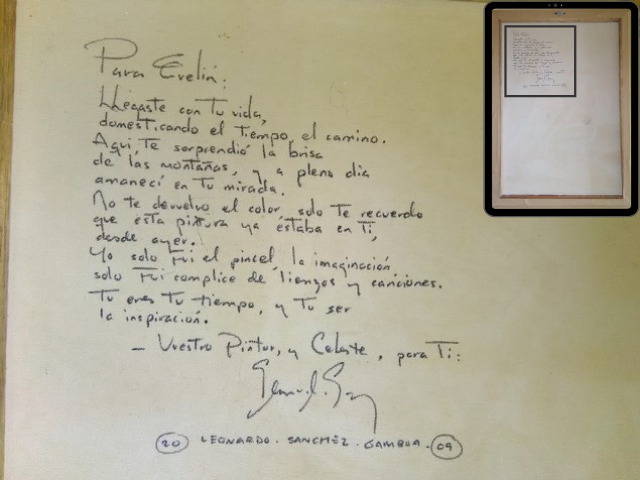 Para Evelin:
Llegaste con Tu vida,
domesticando el tiempo, el camino.
Aqui, Te sorprendió la brisa
de las montañas, y a pleno dia
amanecí en Tu mirada.
No te devuelvo el color, solo Te recuerdo
que esta pintura ya estaba en Ti,
desde ayer.
Yo solo Fui el pincel, la imaginación
solo Fui complice de lienzos y canciones.
Tu eres Tu tiempo, y Tu ser
la inspiración.
- Vuestro Pintor, y Celeste, para Ti:
20 LEONARDO. SANCHÉZ. GAMBOA. 09